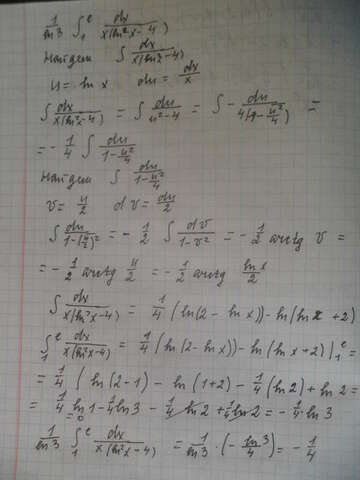 1/ln3 ∫₁ᵉ dx/x(ln²x-4)
Найдем ∫ dx/x(ln²x-4)
u = ln x du = dx/x
∫ dx/x(ln²x-4) = ∫ du/u²-4 = ∫ - du/4(1-u²/4) =
= -1/4 ∫ du/1-u²/4
Найдем ∫ du/1-u²/4
v = u/2 dv = du/2
∫ du/1-(u/2)² = -1/2 ∫ dv/1-v² = -1/2 arctg v =
= -1/2 arctg u/2 = -1/2 arctg ln x/2
∫ dx/x(ln²x-4) = 1/4 (ln(2-ln x))-ln(ln x+2)
∫₁ᵉ dx/x(ln²x-4) = 1/4 (ln(2-ln x))-ln(ln x+2)|₁ᵉ =
= 1/4 (ln(2-1) - ln(1+2) - 1/4 (ln2) + ln2 =
= 1/4 ln1 - 1/4 ln3 - 1/4 ln2 + 1/4 ln2 = -1/4 ln3
=0
1/ln3 ∫₁ᵉ dx/x(ln²x-4) = 1/ln3 · (-ln3/4) = -1/4